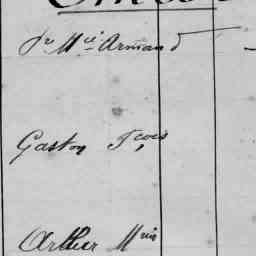 Jn Mie Armand
Gaston Fçois
Arthur Mrie